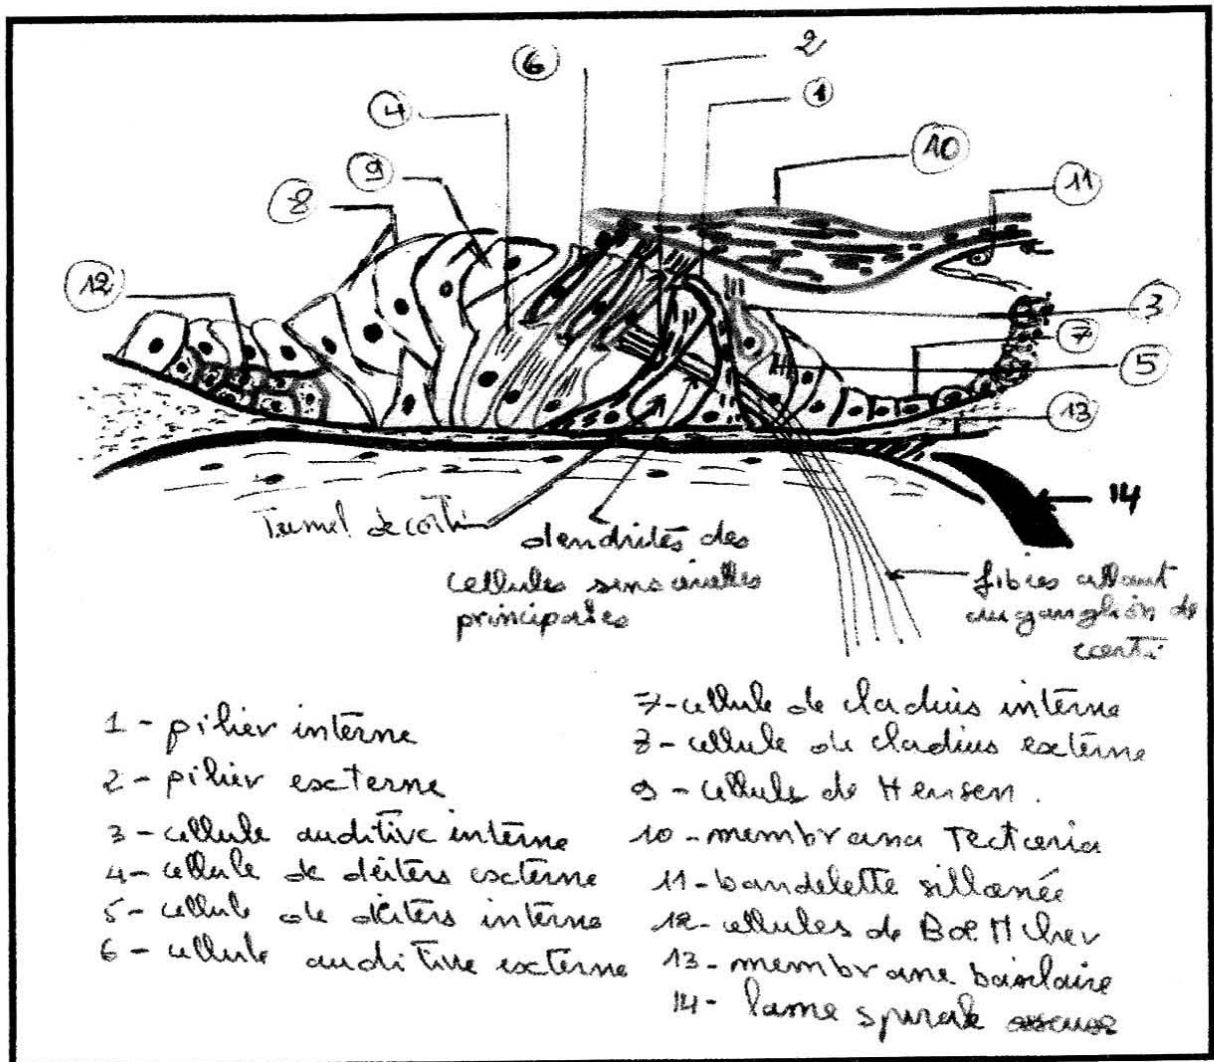 6
2
4
1
9
10
8
11
12
3
7
5
13
14
Tunnel de corti
dendrités des
cellules sensorielles
principales
fibres allant
au ganglion de
corti
1 - pilier interne
2 - pilier externe
3 - cellule auditive interne
4 - cellule de déiters externe
5 - cellule de déiters interne
6 - cellule auditive externe
7 - cellule de cladius interne
8 - cellule de cladius externe
9 - cellule de Hensen.
10 - membrana Tectoria
11 - bandelette sillonée
12 - cellules de
13 - membrane basilaire
14 - lame spirale osseuse